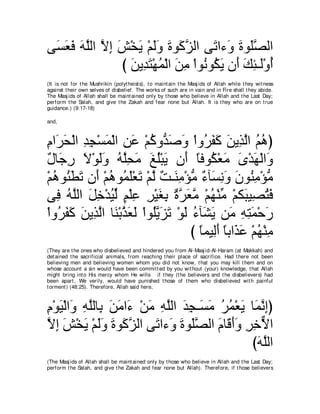 الصَّلَوةَ وَءاتَى الزَّكَوةَ وَلَمْ يَخْشَ إِلاَّ اللَّهَ فَعَسَى
أُوْلَـئِكَ أَن يَكُونُواْ مِنَ الْمُهْتَدِينَ )
(It is not for the Mushrikin (polytheists), to maintain the Masjids of Allah while they witness
against their own selves of disbelief. The works of such are in vain and in Fire shall they abide.
The Masjids of Allah shall be maintained only by those who believe in Allah and the Last Day;
perform the Salah, and give the Zakah and fear none but Allah. It is they who are on true
guidance.) (9:17-18)
and,
(هُمُ الَّذِينَ كَفَرُواْ وَصَدُّوكُمْ عَنِ الْمَسْجِدِ الْحَرَامِ
وَالْهَدْىَ مَعْكُوفاً أَن يَبْلُغَ مَحِلَّهُ وَلَوْلاَ رِجَالٌ
مُّؤْمِنُونَ وَنِسَآءٌ مُّؤْمِنَـتٌ لَّمْ تَعْلَمُوهُمْ أَن تَطَئُوهُمْ
فَتُصِيبَكمْ مِّنْهُمْ مَّعَرَّةٌ بِغَيْرِ عِلْمٍ لِّيُدْخِلَ اللَّهُ فِى
رَحْمَتِهِ مَن يَشَآءُ لَوْ تَزَيَّلُواْ لَعَذَّبْنَا الَّذِينَ كَفَرُواْ
مِنْهُمْ عَذَاباً أَلِيماً )
(They are the ones who disbelieved and hindered you from Al-Masjid-Al-Haram (at Makkah) and
detained the sacrificial animals, from reaching their place of sacrifice. Had there not been
believing men and believing women whom you did not know, that you may kill them and on
whose account a sin would have been committed by you without (your) knowledge, that Allah
might bring into His mercy whom He wills if they (the believers and the disbelievers) had
been apart, We verily, would have punished those of them who disbelieved with painful
torment) (48:25). Therefore, Allah said here,
(إِنَّمَا يَعْمُرُ مَسَـجِدَ اللَّهِ مَنْ ءَامَنَ بِاللَّهِ وَالْيَوْمِ
الاٌّخِرِ وَأَقَامَ الصَّلَوةَ وَءاتَى الزَّكَوةَ وَلَمْ يَخْشَ إِلاَّ
اللَّهَ)
(The Masjids of Allah shall be maintained only by those who believe in Allah and the Last Day;
perform the Salah, and give the Zakah and fear none but Allah). Therefore, if those believers